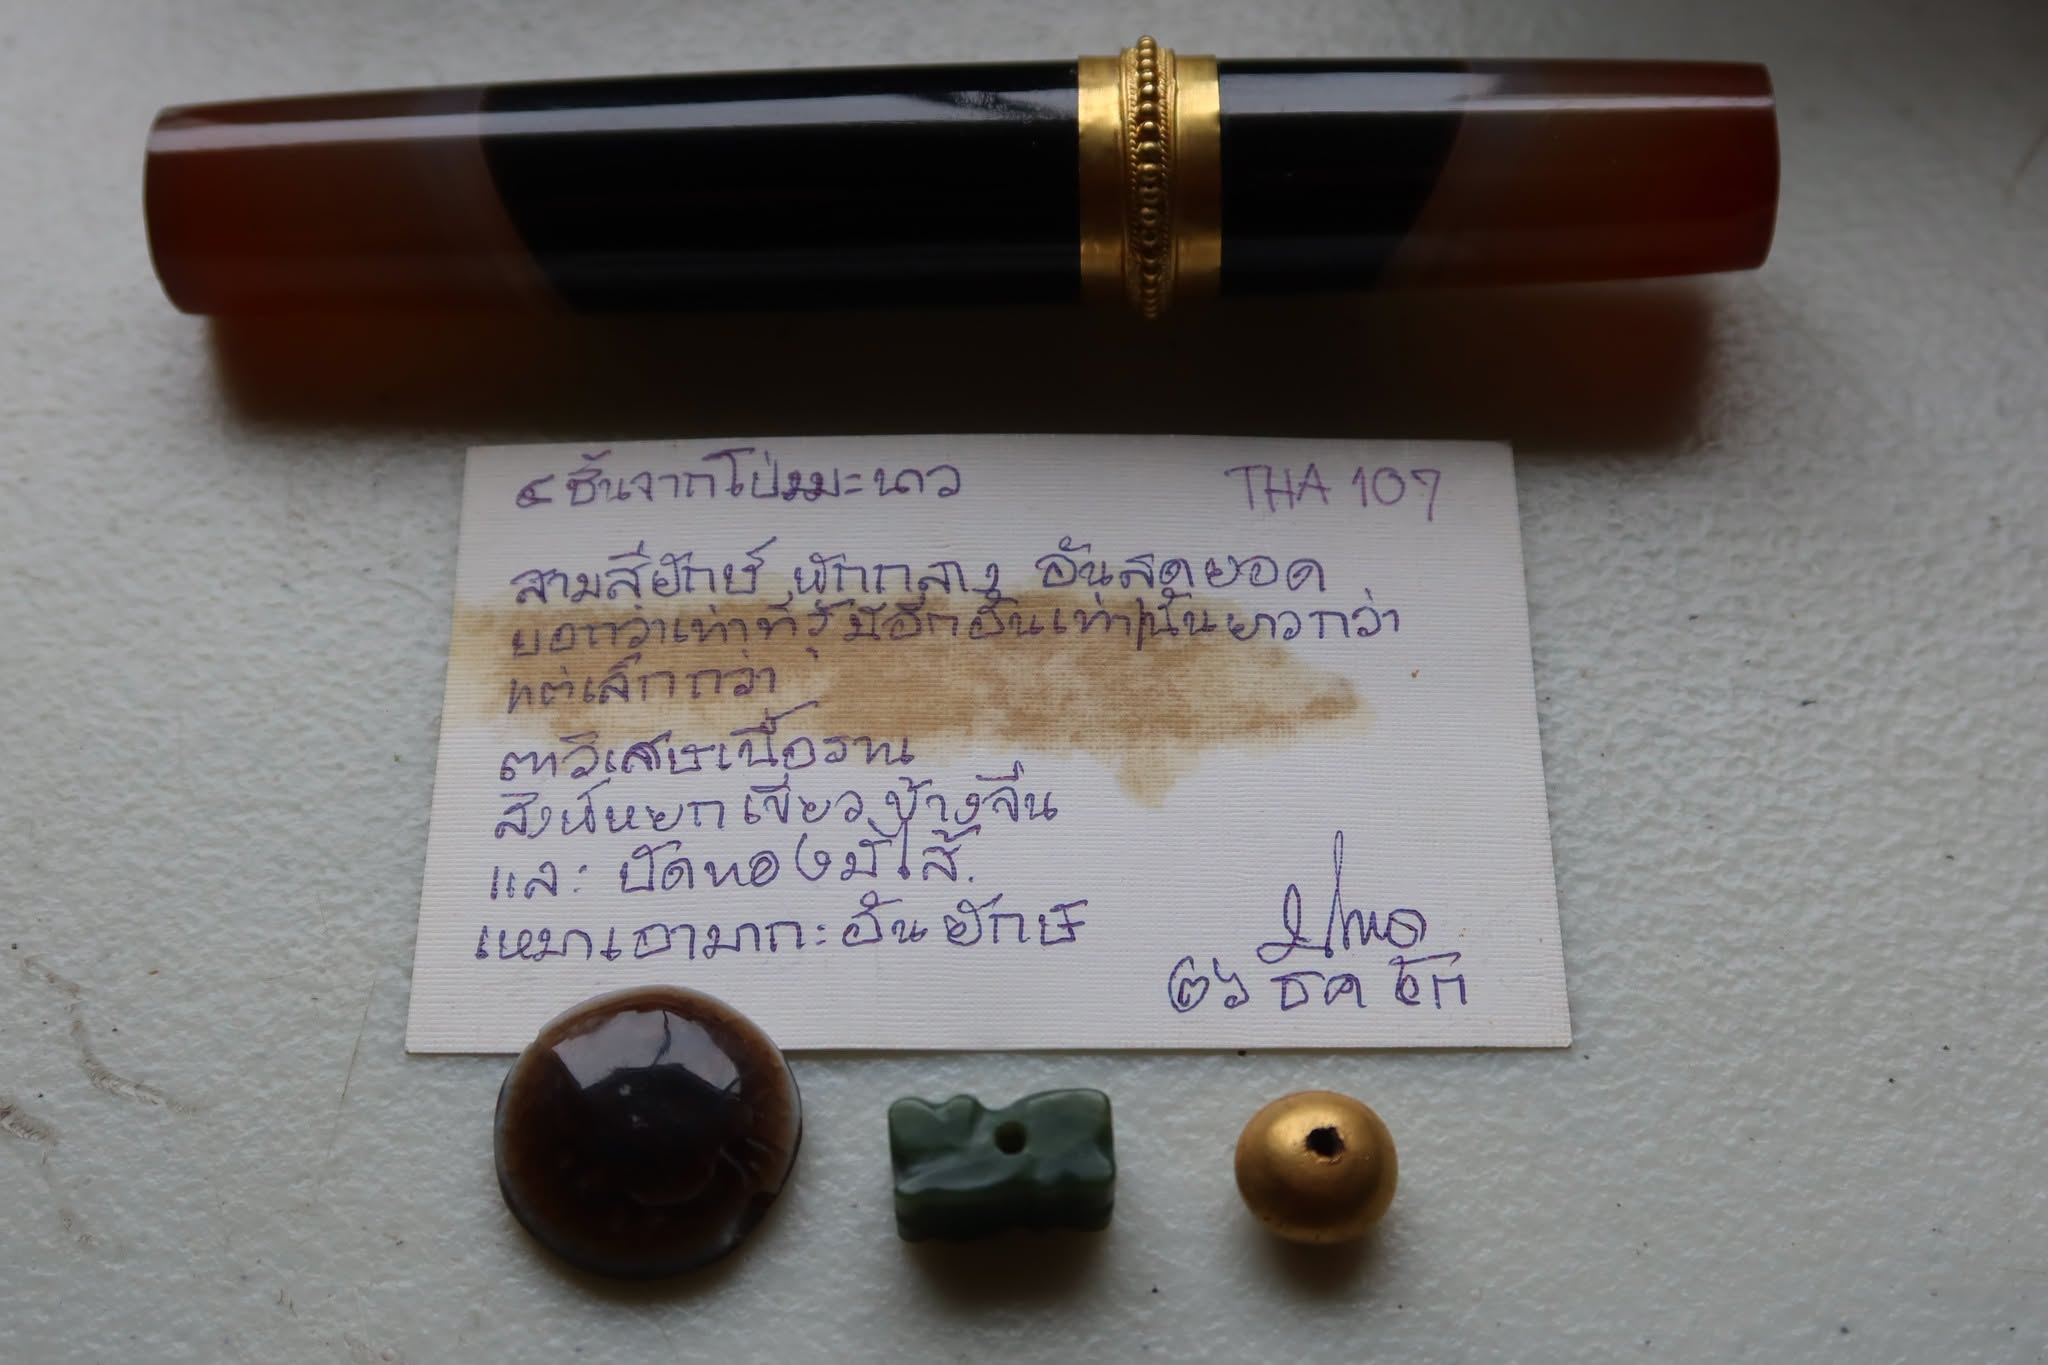 ๔ ชิ้นจากโป่งมะนาว THA 107
สามสียักษ์ พักกลาง อันสุดยอด
ยอกว่าเท่าที่รู้มีอีกอันเท่านั้นยาวกว่า
แต่เล็กกว่า
ตาวิเศษเนื้อราน
สิงห์หยกเขียว ข้างจีน
และ ปัดทองมีไส้.
เหมาเอามาก: อันยักษ์
๒๖ ธค